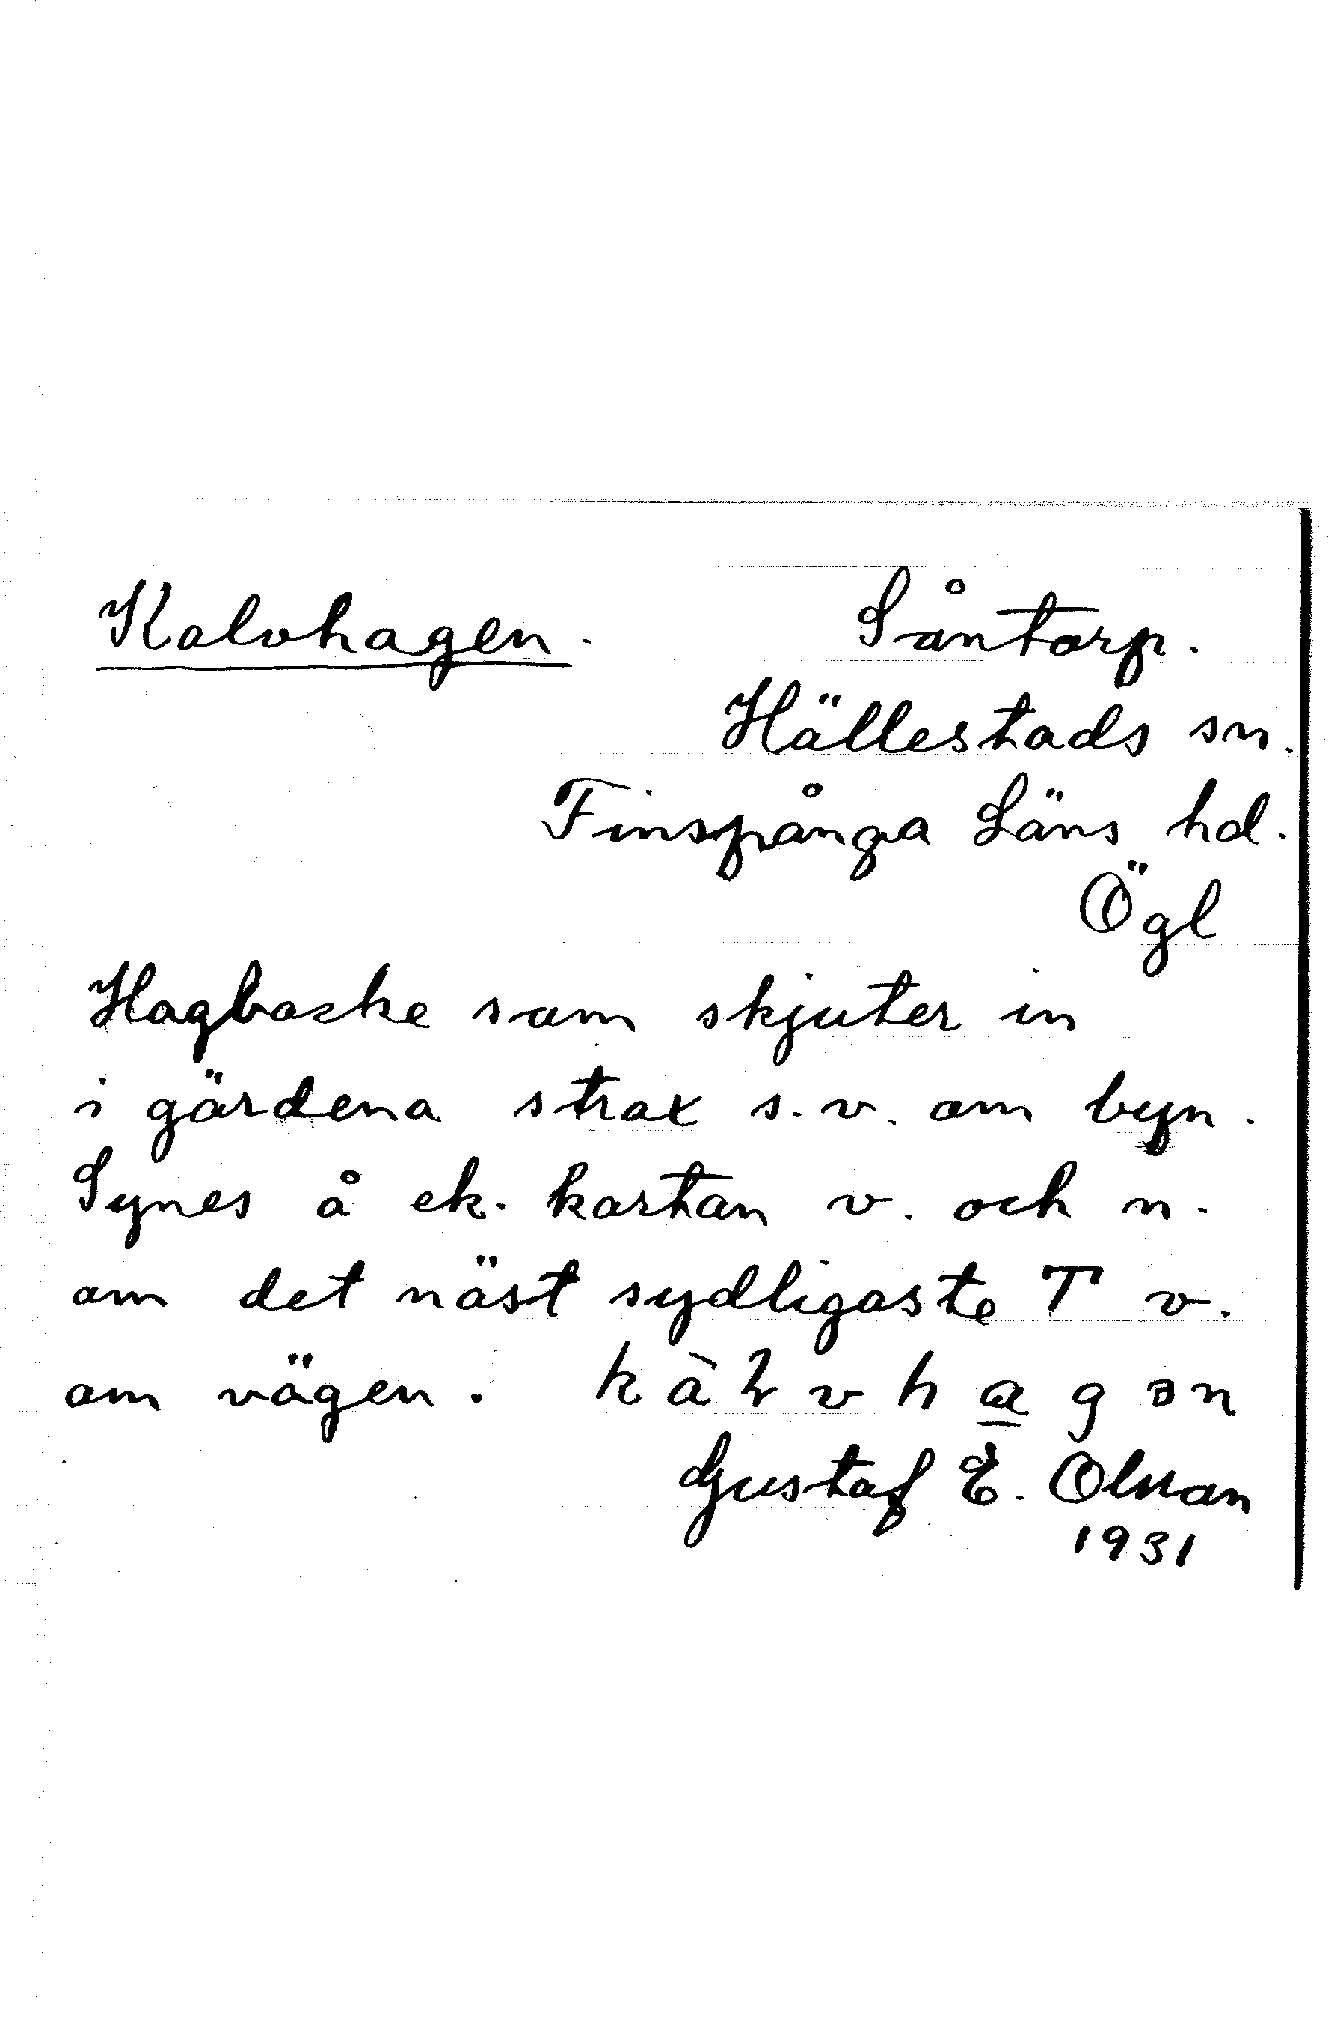 Kalvhagen. Såntorp.
Hällestads sn.
Finspånga Läns hd.
Ögl
Hagbacke som skjuter in
i gärdena strax s.v. om byn.
Synes å ek. kartan v. och n.
om det näst sydligaste T v.
om vägen. kàlvhagən
Gustaf E. Olsson
1931